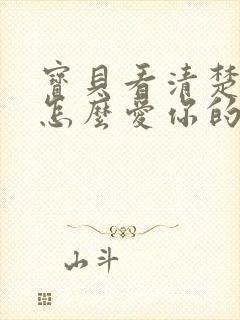 寶貝看清楚
怎麼愛你的
山斗